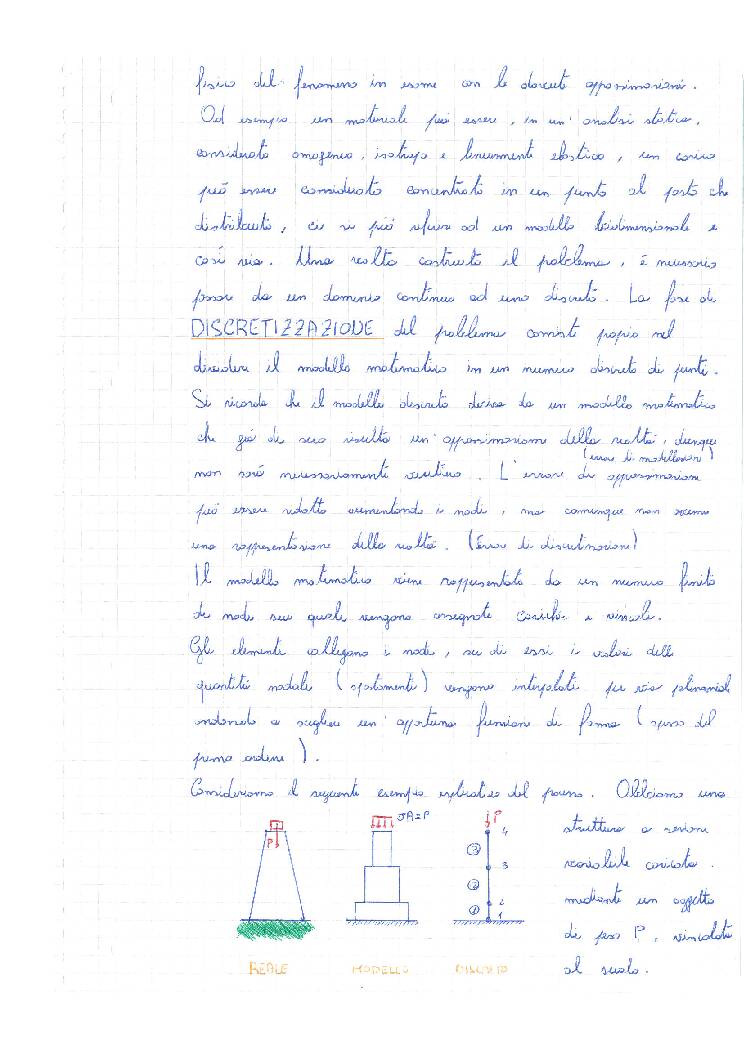 fisico del fenomeno in esame con le dovute approssimazioni.
Ad esempio un materiale può essere, in un' analisi statica,
considerato omogeneo, isotropo e linearmente elastico, un carico
può essere considerato concentrato in un punto al posto che
distribuito, ci si può riferire ad un modello bidimensionale e
così via. Una volta costruito il problema, è necessario
passare da un dominio continuo ad uno discreto. La fase di
DISCRETIZZAZIONE del problema consiste proprio nel
dividere il modello matematico in un numero discreto di punti.
Si ricorda che il modello discreto deriva da un modello matematico
che già di suo risulta un' approssimazione della realtà, dunque
(errore di modellazione)
non sarà necessariamente veritiero. L' errore di approssimazione
può essere ridotto aumentando i nodi, ma comunque non avremo
una rappresentazione della realtà. (Errore di discretizzazione)
Il modello matematico viene rappresentato da un numero finito
di nodi sui quali vengono assegnati carichi e vincoli.
Gli elementi collegano i nodi, su di essi i valori delle
quantità nodali (spostamenti) vengono interpolati per via polinomiale
andando a scegliere un' opportuna funzione di forma (spesso del
primo ordine).
Consideriamo il seguente esempio esplicativo del processo. Abbiamo una
struttura a sezione
variabile caricata
mediante un oggetto
di peso P, vincolata
al suolo.
P
σA=P
P
4
3
3
2
2
1
1
REALE MODELLO DISCRETO